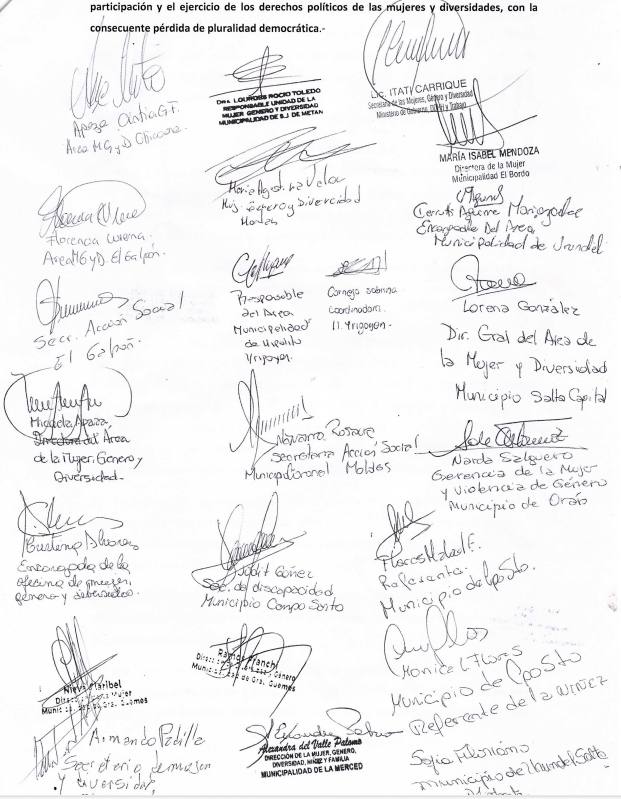 participación y el ejercicio de los derechos políticos de las mujeres y diversidades, con la
consecuente pérdida de pluralidad democrática.-
Apaza Cintia G.F.
Area M G y D Chicoana.
Dra. LOURDES ROCIO TOLEDO
RESPONSABLE UNIDAD DE LA
MUJER GENERO Y DIVERSIDAD
MUNICIPALIDAD DE S.J. DE METAN
LIC. ITATI CARRIQUE
Secretaria de las Mujeres, Género y Diversidad
Ministerio de Gobierno, DDHH y Trabajo
MARÍA ISABEL MENDOZA
Directora de la Mujer
Municipalidad El Bordo
Florencia
Area MG y D. El Galpón.
Maria Agustina Velar
Muj. Género y Diversidad
Cerruti Aguirre
Encargada Del Area
Municipalidad de Urundel
Secr. Acción Social
El Galpón.
Responsable
del Area
Municipalidad
de Hipolito
Yrigoyen.
Cornejo Sabrina
Coordinadora.
H. Yrigoyen-
Lorena González
Dir. Gral del Area de
la Mujer y Diversidad
Municipio Salta Capital
Micaela Apaza,
Directora del Area
de la Mujer, Genero y
Diversidad-
Navarro Rosario
Secretaria Acción Social
Municip. Coronel Moldes
Narda Salguero
Gerencia de la Mujer
y Violencia de Género
Municipio de Orán
Encargada de la
oficina de mujer,
género y diversidad.
Judit Gómez
Sec. de discapacidad
Municipio Campo Santo
Flores
Referenta.
Municipio de Cpo Sto.
Nieva Maribel
Mujer
Gral. Guemes
Género
Gral. Guemes
Monica L Flores
Municipio de Cpo Sto
Referente de la NIÑEZ
Armando Padilla
Secretario de mujer
y diversidad,
Alexandra del Valle Palomo
DIRECCIÓN DE LA MUJER, GENERO,
DIVERSIDAD, NIÑEZ Y FAMILIA
MUNICIPALIDAD DE LA MERCED
Sofia
Municipio de Urundel Salta